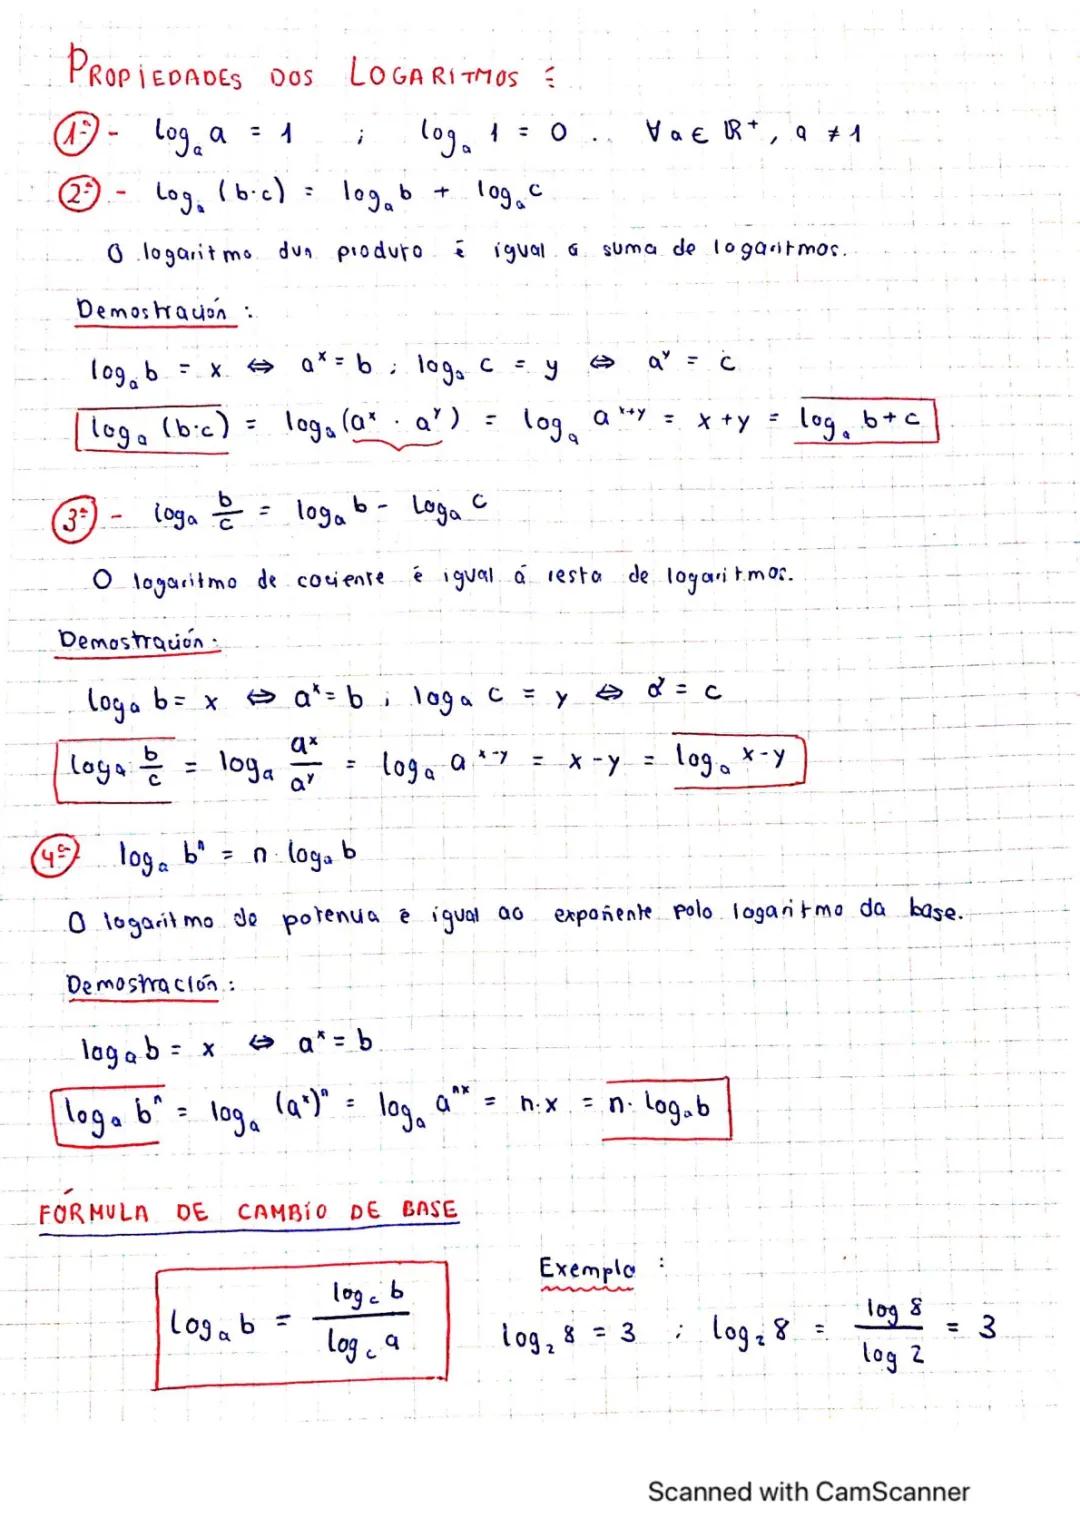 PROPIEDADES DOS LOGARITMOS :
1ª - logₐ a = 1 ; logₐ 1 = 0 .. ∀ a ∈ ℝ⁺, a ≠ 1
2ª - Logₐ (b·c) = logₐ b + logₐ c
O logaritmo dun produto é igual a suma de logaritmos.
Demostración :
logₐ b = x ⇔ aˣ = b ; logₐ c = y ⇔ aʸ = c
logₐ (b·c) = logₐ (aˣ · aʸ) = logₐ aˣ⁺ʸ = x + y = logₐ b + c
3ª - logₐ b/c = logₐ b - Logₐ c
O logaritmo de cociente é igual á resta de logaritmos.
Demostración :
logₐ b = x ⇔ aˣ = b ; logₐ c = y ⇔ aʸ = c
logₐ b/c = logₐ aˣ/aʸ = logₐ aˣ⁻ʸ = x - y = logₐ x - y
4ª logₐ bⁿ = n · logₐ b
O logaritmo de potencia é igual ao expoñente polo logaritmo da base.
Demostración :
logₐ b = x ⇔ aˣ = b
logₐ bⁿ = logₐ (aˣ)ⁿ = logₐ aⁿˣ = n·x = n· Logₐ b
FÓRMULA DE CAMBIO DE BASE
Exemplo :
Logₐ b = log_c b / log_c a
log₂ 8 = 3 ; log₂ 8 = log 8 / log 2 = 3
Scanned with CamScanner